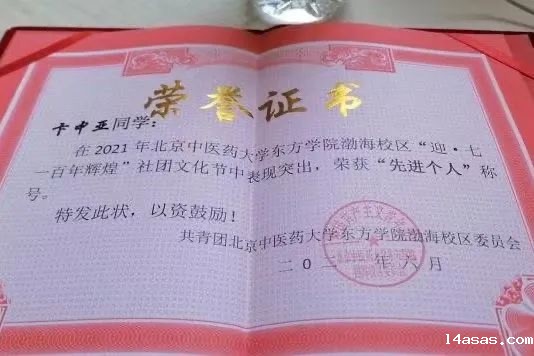 荣誉证书
卡中亚同学：
在2021年北京中医药大学东方学院渤海校区“迎·七
一百年辉煌”社团文化节中表现突出，荣获“先进个人”称
号。
特发此状，以资鼓励！
共青团北京中医药大学东方学院渤海校区委员会
二〇二 年六月
14asas.com